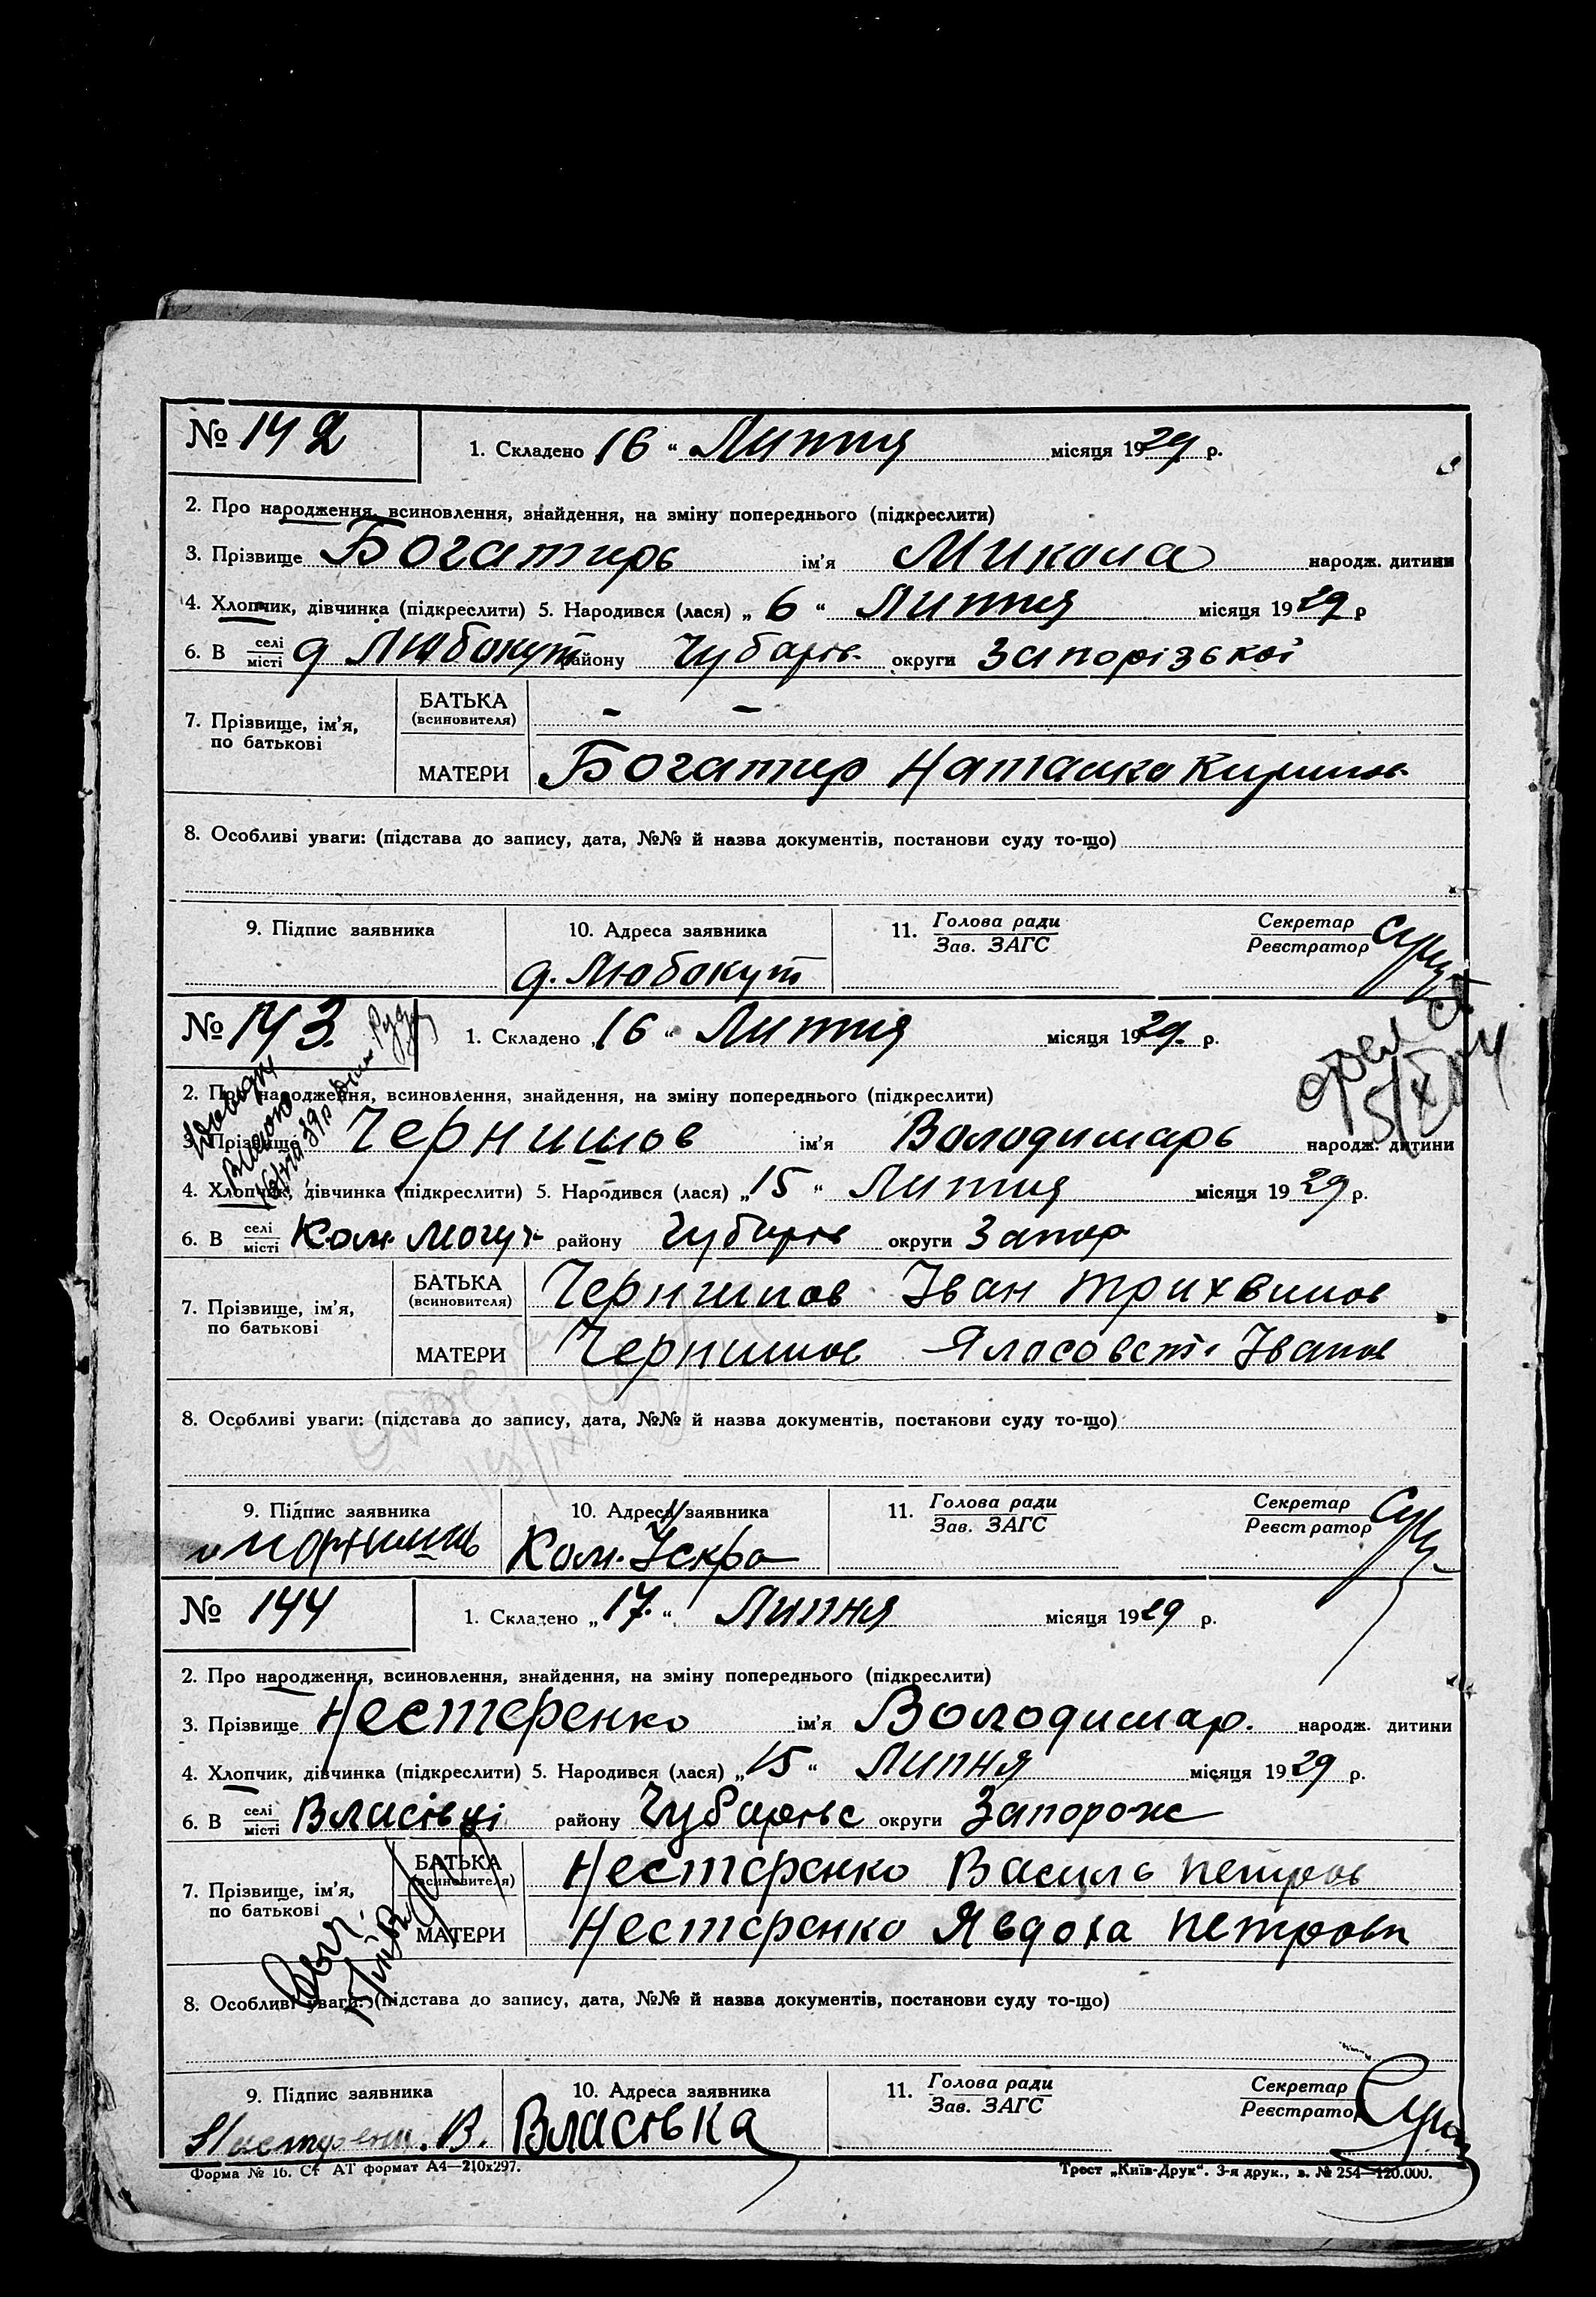 № 142
1. Складено 16 “ Липня місяця 1929 р.
2. Про народження, всиновлення, знайдення, на зміну попереднього (підкреслити)
3. Прізвище Богатирь ім’я Микола народж. дитини
4. Хлопчик, дівчинка (підкреслити) 5. Народився (лася) „ 6 “ Липня місяця 1929 р
6. В селі місті д Любокут району Чубарів. округи Запорізької
7. Прізвище, ім’я, по батькові
БАТЬКА (всиновителя) – –
МАТЕРИ Богатир Наташка Кирилов.
8. Особливі уваги: (підстава до запису, дата, №№ й назва документів, постанови суду то-що)
9. Підпис заявника 10. Адреса заявника 11. Голова ради Зав. ЗАГС Секретар Реєстратор
д. Любокут
№ 143.
1. Складено „16 “ Липня місяця 1929. р.
2. Про народження, всиновлення, знайдення, на зміну попереднього (підкреслити)
3. Прізвище Чернишов ім’я Володимарь народж. дитини
4. Хлопчик, дівчинка (підкреслити) 5. Народився (лася) „15 “ Липня місяця 1929 р.
6. В селі місті Ком. Могуч району Чубарів округи Запор
7. Прізвище, ім’я, по батькові
БАТЬКА (всиновителя) Чернишов Іван Трихвимов
МАТЕРИ Чернишов Іванов
8. Особливі уваги: (підстава до запису, дата, №№ й назва документів, постанови суду то-що)
9. Підпис заявника 10. Адреса заявника 11. Голова ради Зав. ЗАГС Секретар Реєстратор
Ком. Іскра
№ 144
1. Складено „17.“ Липня місяця 1929 р.
2. Про народження, всиновлення, знайдення, на зміну попереднього (підкреслити)
3. Прізвище Нестеренко ім’я Володимар. народж. дитини
4. Хлопчик, дівчинка (підкреслити) 5. Народився (лася) „15 “ Липня місяця 1929 р.
6. В селі місті Власівці району Чубарівс округи Запорож
7. Прізвище, ім’я, по батькові
БАТЬКА (всиновителя) Нестеренко Василь Петров
МАТЕРИ Нестеренко Явдоха Петровн
8. Особливі уваги: (підстава до запису, дата, №№ й назва документів, постанови суду то-що)
9. Підпис заявника 10. Адреса заявника 11. Голова ради Зав. ЗАГС Секретар Реєстратор
В. Власівка
Форма № 16. Ст АТ формат А4—210x297. Трест „Київ-Друк“. 3-я друк., з. № 254—120.000.